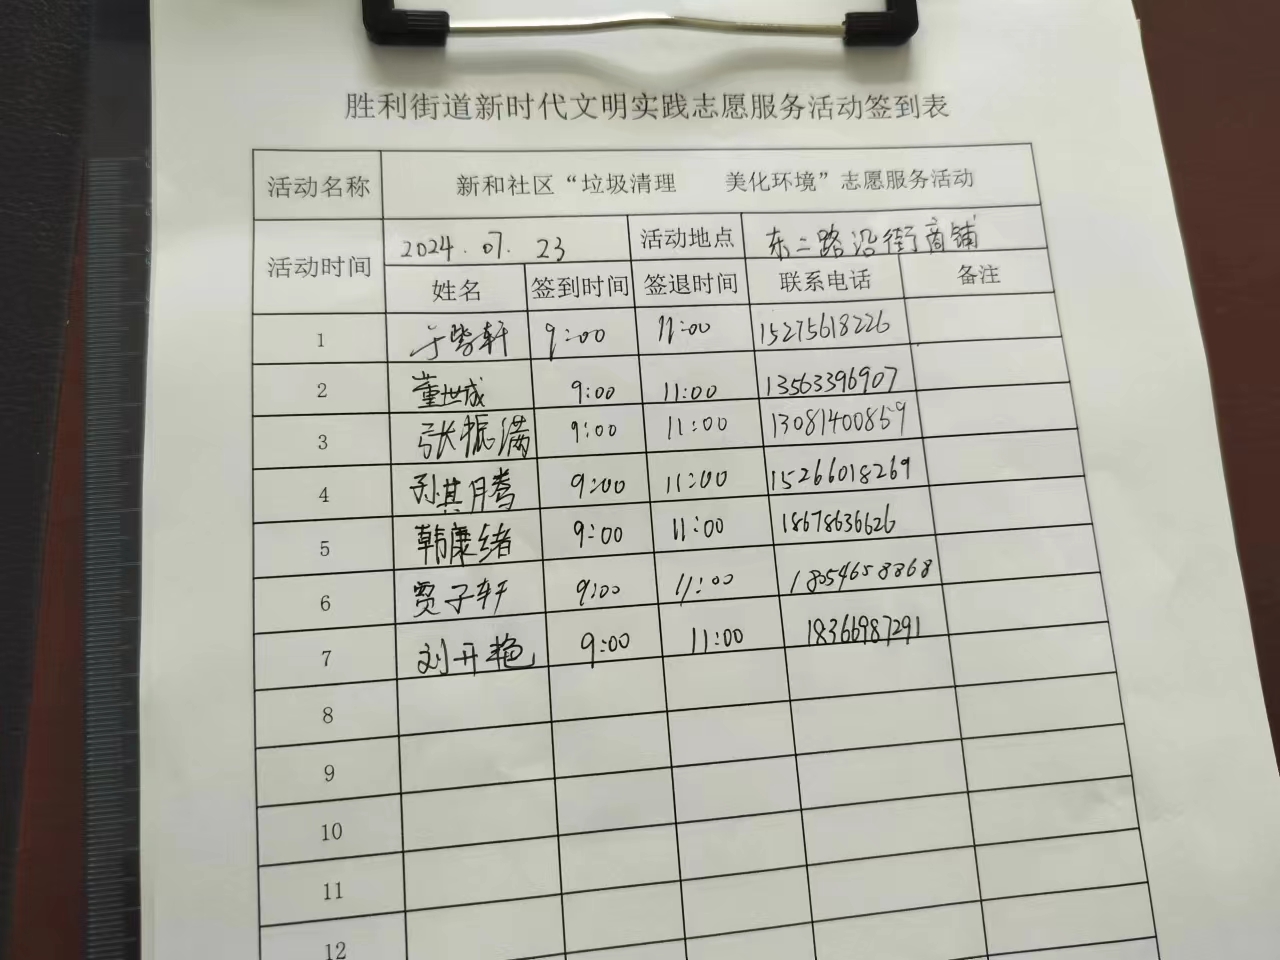 胜利街道新时代文明实践志愿服务活动签到表
活动名称 新和社区“垃圾清理 美化环境”志愿服务活动
活动时间 2024.07.23 活动地点 东二路沿街商铺
姓名 签到时间 签退时间 联系电话 备注
1 于紫轩 9:00 11:00 15275618226
2 董世成 9:00 11:00 13563396907
3 张振满 9:00 11:00 13081400859
4 孙其腾 9:00 11:00 15266018269
5 韩康绪 9:00 11:00 18678636626
6 贾子轩 9:00 11:00 18054658868
7 刘开艳 9:00 11:00 18366987291
8
9
10
11
12